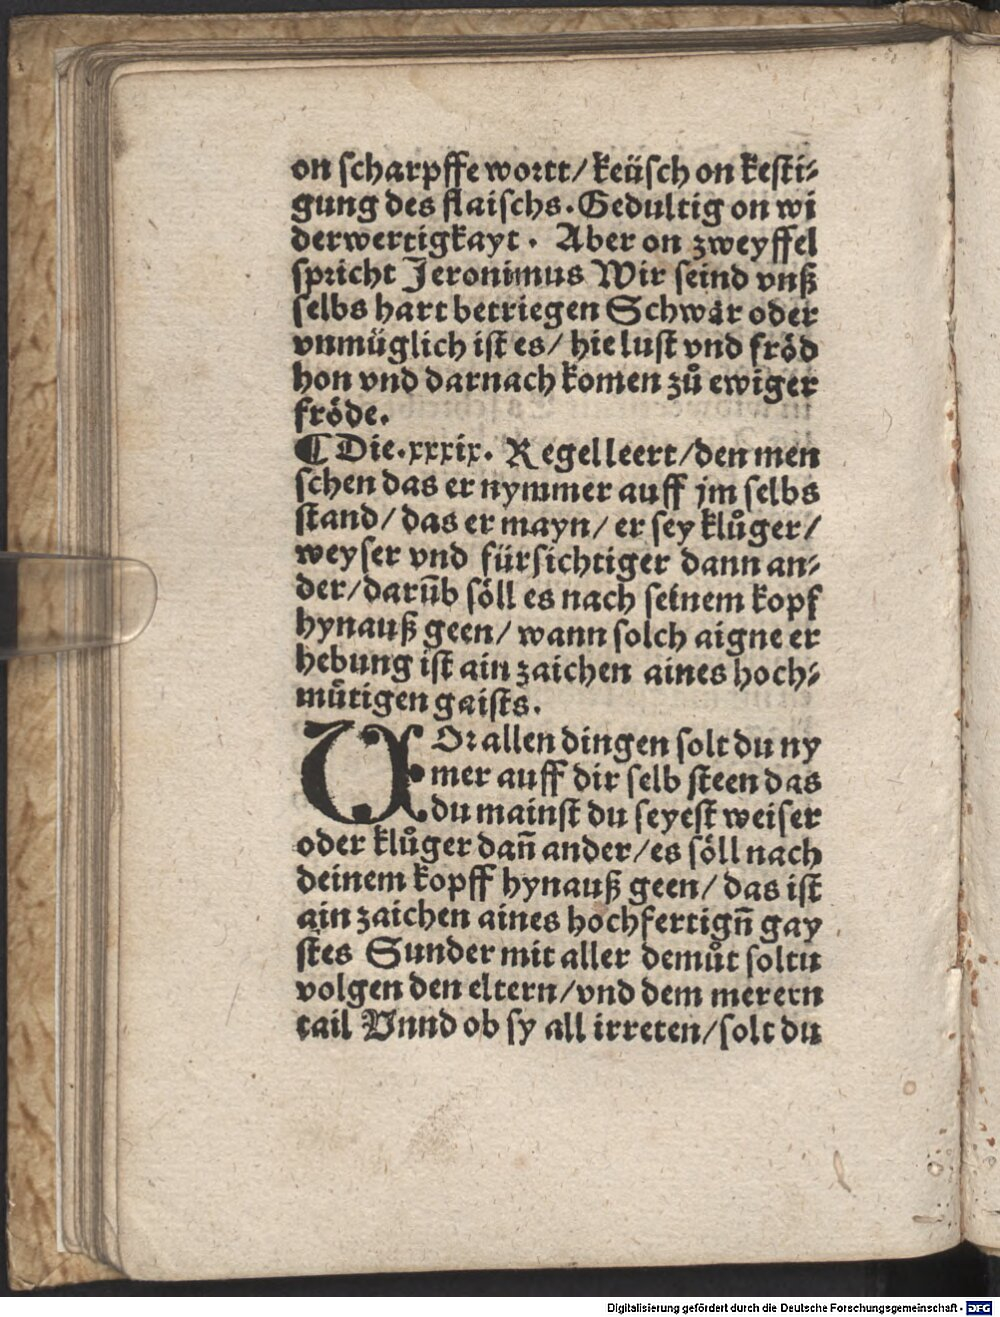 on scharpffe wortt/ keüsch on kesti⸗
gung des flaischs. Gedultig on wi
derwertigkayt. Aber on zweyffel
spricht Jeronimus Wir seind vnß
selbs hart betriegen Schwaͤr oder
vnmüglich ist es/ hie lust vnd froͤd
hon vnd darnach komen zuͦ ewiger
froͤde.
¶ Die.xxxix. Regel leert/den men
schen das er nymmer auff jm selbs
stand/ das er mayn/ er sey kluͦger/
weyser vnd fürsichtiger dann an⸗
der/darūb soͤll es nach seinem kopf
hynauß geen/ wann solch aigne er
hebung ist ain zaichen aines hoch⸗
muͤtigen gaists.
VOr allen dingen solt du ny
mer auff dir selb steen das
du mainst du seyest weiser
oder kluͦger dañ ander/es soͤll nach
deinem kopff hynauß geen/ das ist
ain zaichen aines hochfertigñ gay
stes Sunder mit aller demuͦt soltu
volgen den eltern/vnd dem merern
tail Vnnd ob sy all irreten/solt du
Digitalisierung gefördert durch die Deutsche Forschungsgemeinschaft - DFG